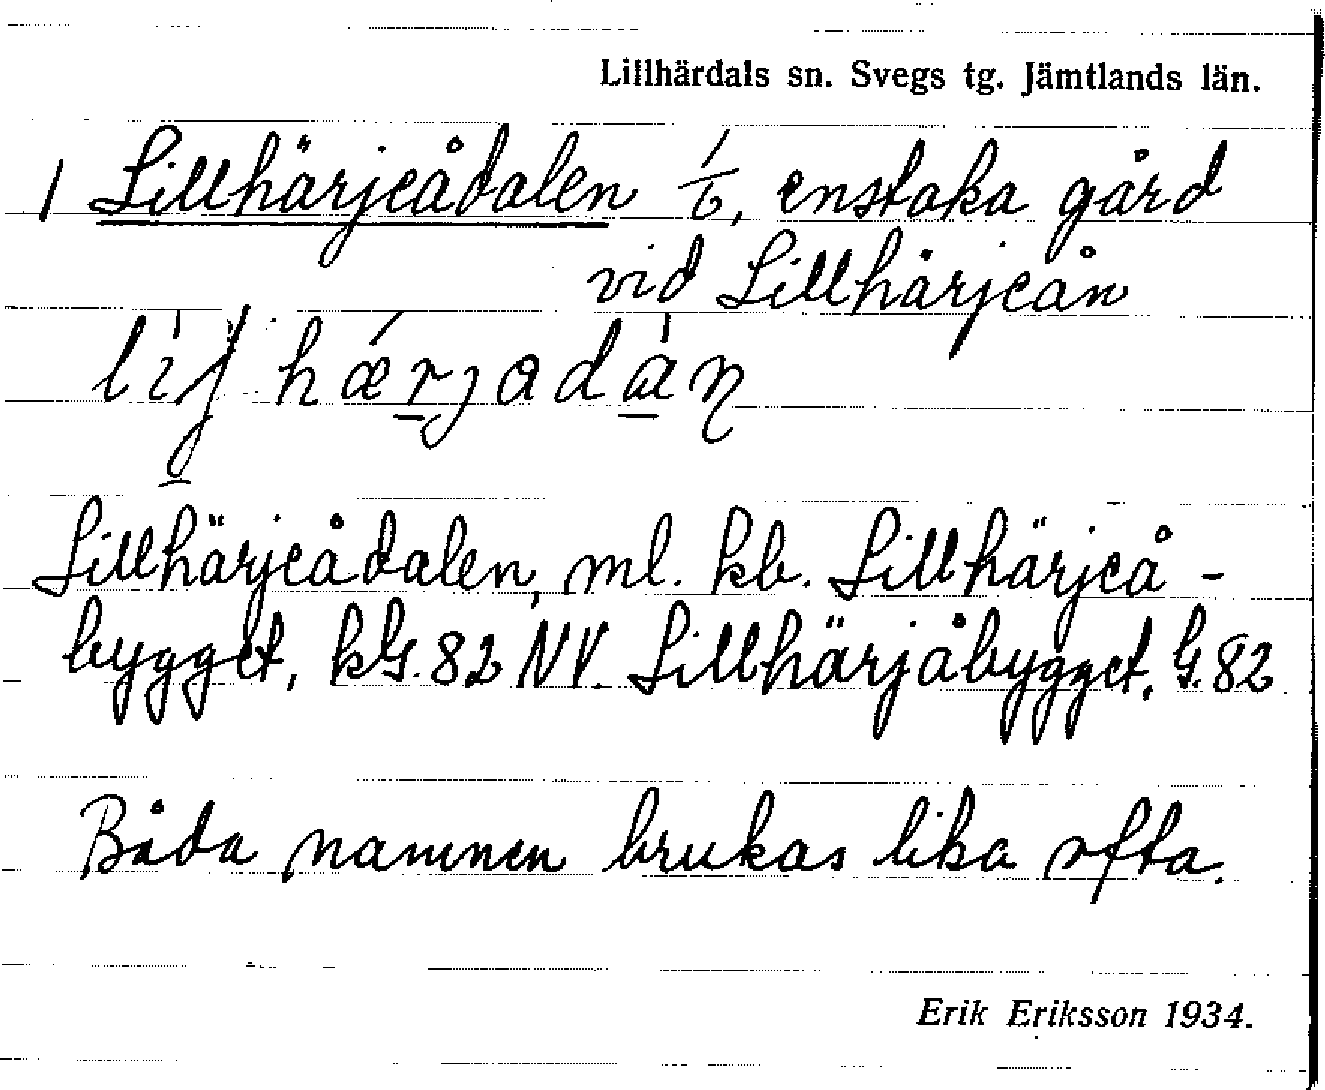 Lillhärdals sn. Svegs tg. Jämtlands län.
1 Lillhärjeådalen ⅟₆, enstaka gård
vid Lillhärjeån
Lillhärjeådalen, ml. kb. Lillhärjeå-
bygget, kG. 82 NV. Lillhärjåbygget, G. 82
Båda namnen brukas lika ofta.
Erik Eriksson 1934.